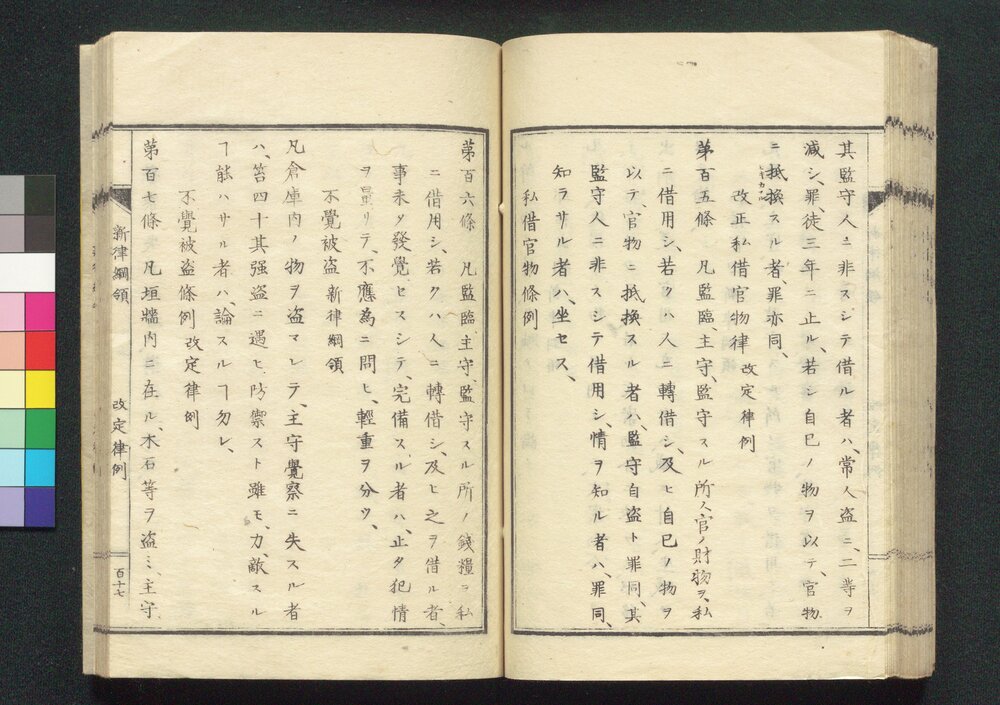 其監守人ニ非スシテ借ル者ハ、常人盗ニ、二等ヲ
減シ、罪、徒三年ニ止ル、若シ自已ノ物ヲ以テ、官物
ニ抵換スル者、罪亦同、
改正私借官物律 改定律例
第百五條 凡監臨、主守、監守スル所ノ官ノ財物ヲ、私
ニ借用シ、若クハ人ニ轉借シ、及ヒ自已ノ物ヲ
以テ、官物ニ抵換スル者ハ、監守自盗ト罪同、其
監守人ニ非スシテ借用シ、情ヲ知ル者ハ、罪同、
知ラサル者ハ、坐セス、
私借官物條例
第百六條 凡監臨、主守、監守スル所ノ錢糧ヲ私
ニ借用シ、若クハ人ニ轉借シ、及ヒ之ヲ借ル者、
事未タ發覺セスシテ、完備スル者ハ、止タ犯情
ヲ量リテ、不應為ニ問ヒ、輕重ヲ分ツ、
不覺被盗 新律綱領
凡倉庫内ノ物ヲ盗マレテ、主守覺察ニ失スル者
ハ、笞四十其强盗ニ遇ヒ、防禦スト雖モ、力、敵スル
ヿ能ハサル者ハ、論スルヿ勿レ、
不覺被盗條例 改定律例
第百七條 凡垣牆内ニ在ル、木石等ヲ盗ミ、主守、
新律綱領 改定律例 百十七